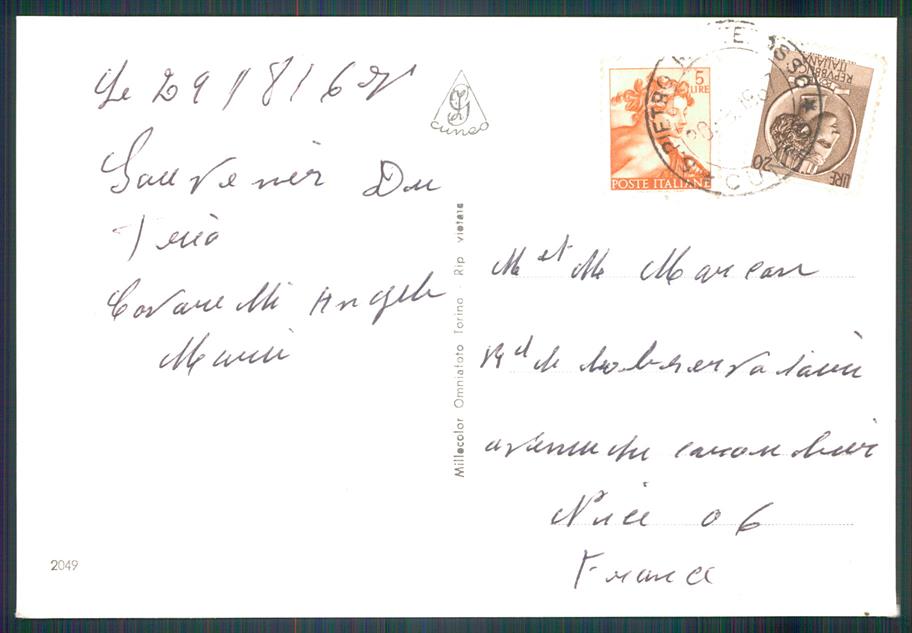 Le 29/8/67
Souvenir Du
Trio
Cavarelli Angele
Marie
SG
cuneo
Millecolor Omniafoto Torino - Rip vietata
2049
5
LIRE
POSTE ITALIANE
REPVBBLICA
ITALIANA
LIRE
20
S. PIETRO
CU
M et Me Marcan
Bd de l'observatoire
avenue du caroubier
Nice 06
France